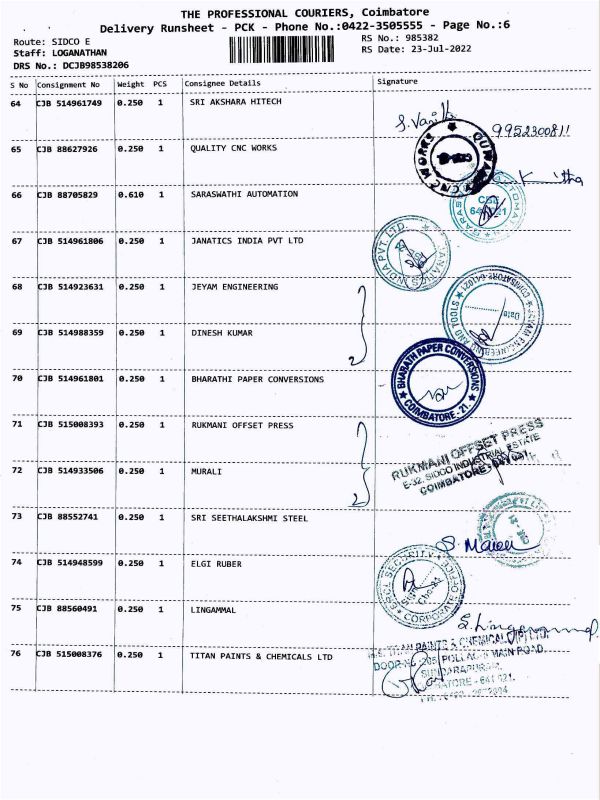 THE PROFESSIONAL COURIERS, Coimbatore
Delivery Runsheet - PCK - Phone No.:0422-3505555 - Page No.:6
Route: SIDCO E
RS No.: 985382
Staff: LOGANATHAN
RS Date: 23-Jul-2022
DRS No.: DCJB98538206
S No Consignment No Weight PCS Consignee Details Signature
64 CJB 514961749 0.250 1 SRI AKSHARA HITECH
9952300811
65 CJB 88627926 0.250 1 QUALITY CNC WORKS
CNC WORKS
66 CJB 88705829 0.610 1 SARASWATHI AUTOMATION
CBE
67 CJB 514961806 0.250 1 JANATICS INDIA PVT LTD
JANATICS INDIA PVT. LTD.
68 CJB 514923631 0.250 1 JEYAM ENGINEERING
JEYAM ENGINEERING AND TOOLS COIMBATORE-641021
Date
69 CJB 514988359 0.250 1 DINESH KUMAR
2
70 CJB 514961801 0.250 1 BHARATHI PAPER CONVERSIONS
BHARATH PAPER CONVERSIONS
COIMBATORE - 21.
71 CJB 515008393 0.250 1 RUKMANI OFFSET PRESS
RUKMANI OFFSET PRESS
E-32, SIDCO INDUSTRIAL ESTATE
COIMBATORE - 641 021.
72 CJB 514933506 0.250 1 MURALI
2
73 CJB 88552741 0.250 1 SRI SEETHALAKSHMI STEEL
74 CJB 514948599 0.250 1 ELGI RUBER
SECURITY
CORPORATE
75 CJB 88560491 0.250 1 LINGAMMAL
S. Lingammal
76 CJB 515008376 0.250 1 TITAN PAINTS & CHEMICALS LTD
TITAN PAINTS & CHEMICALS (P) LTD
DOOR NO: 205, POLLACHI MAIN ROAD,
SUNDARAPURAM,
COIMBATORE - 641 021.